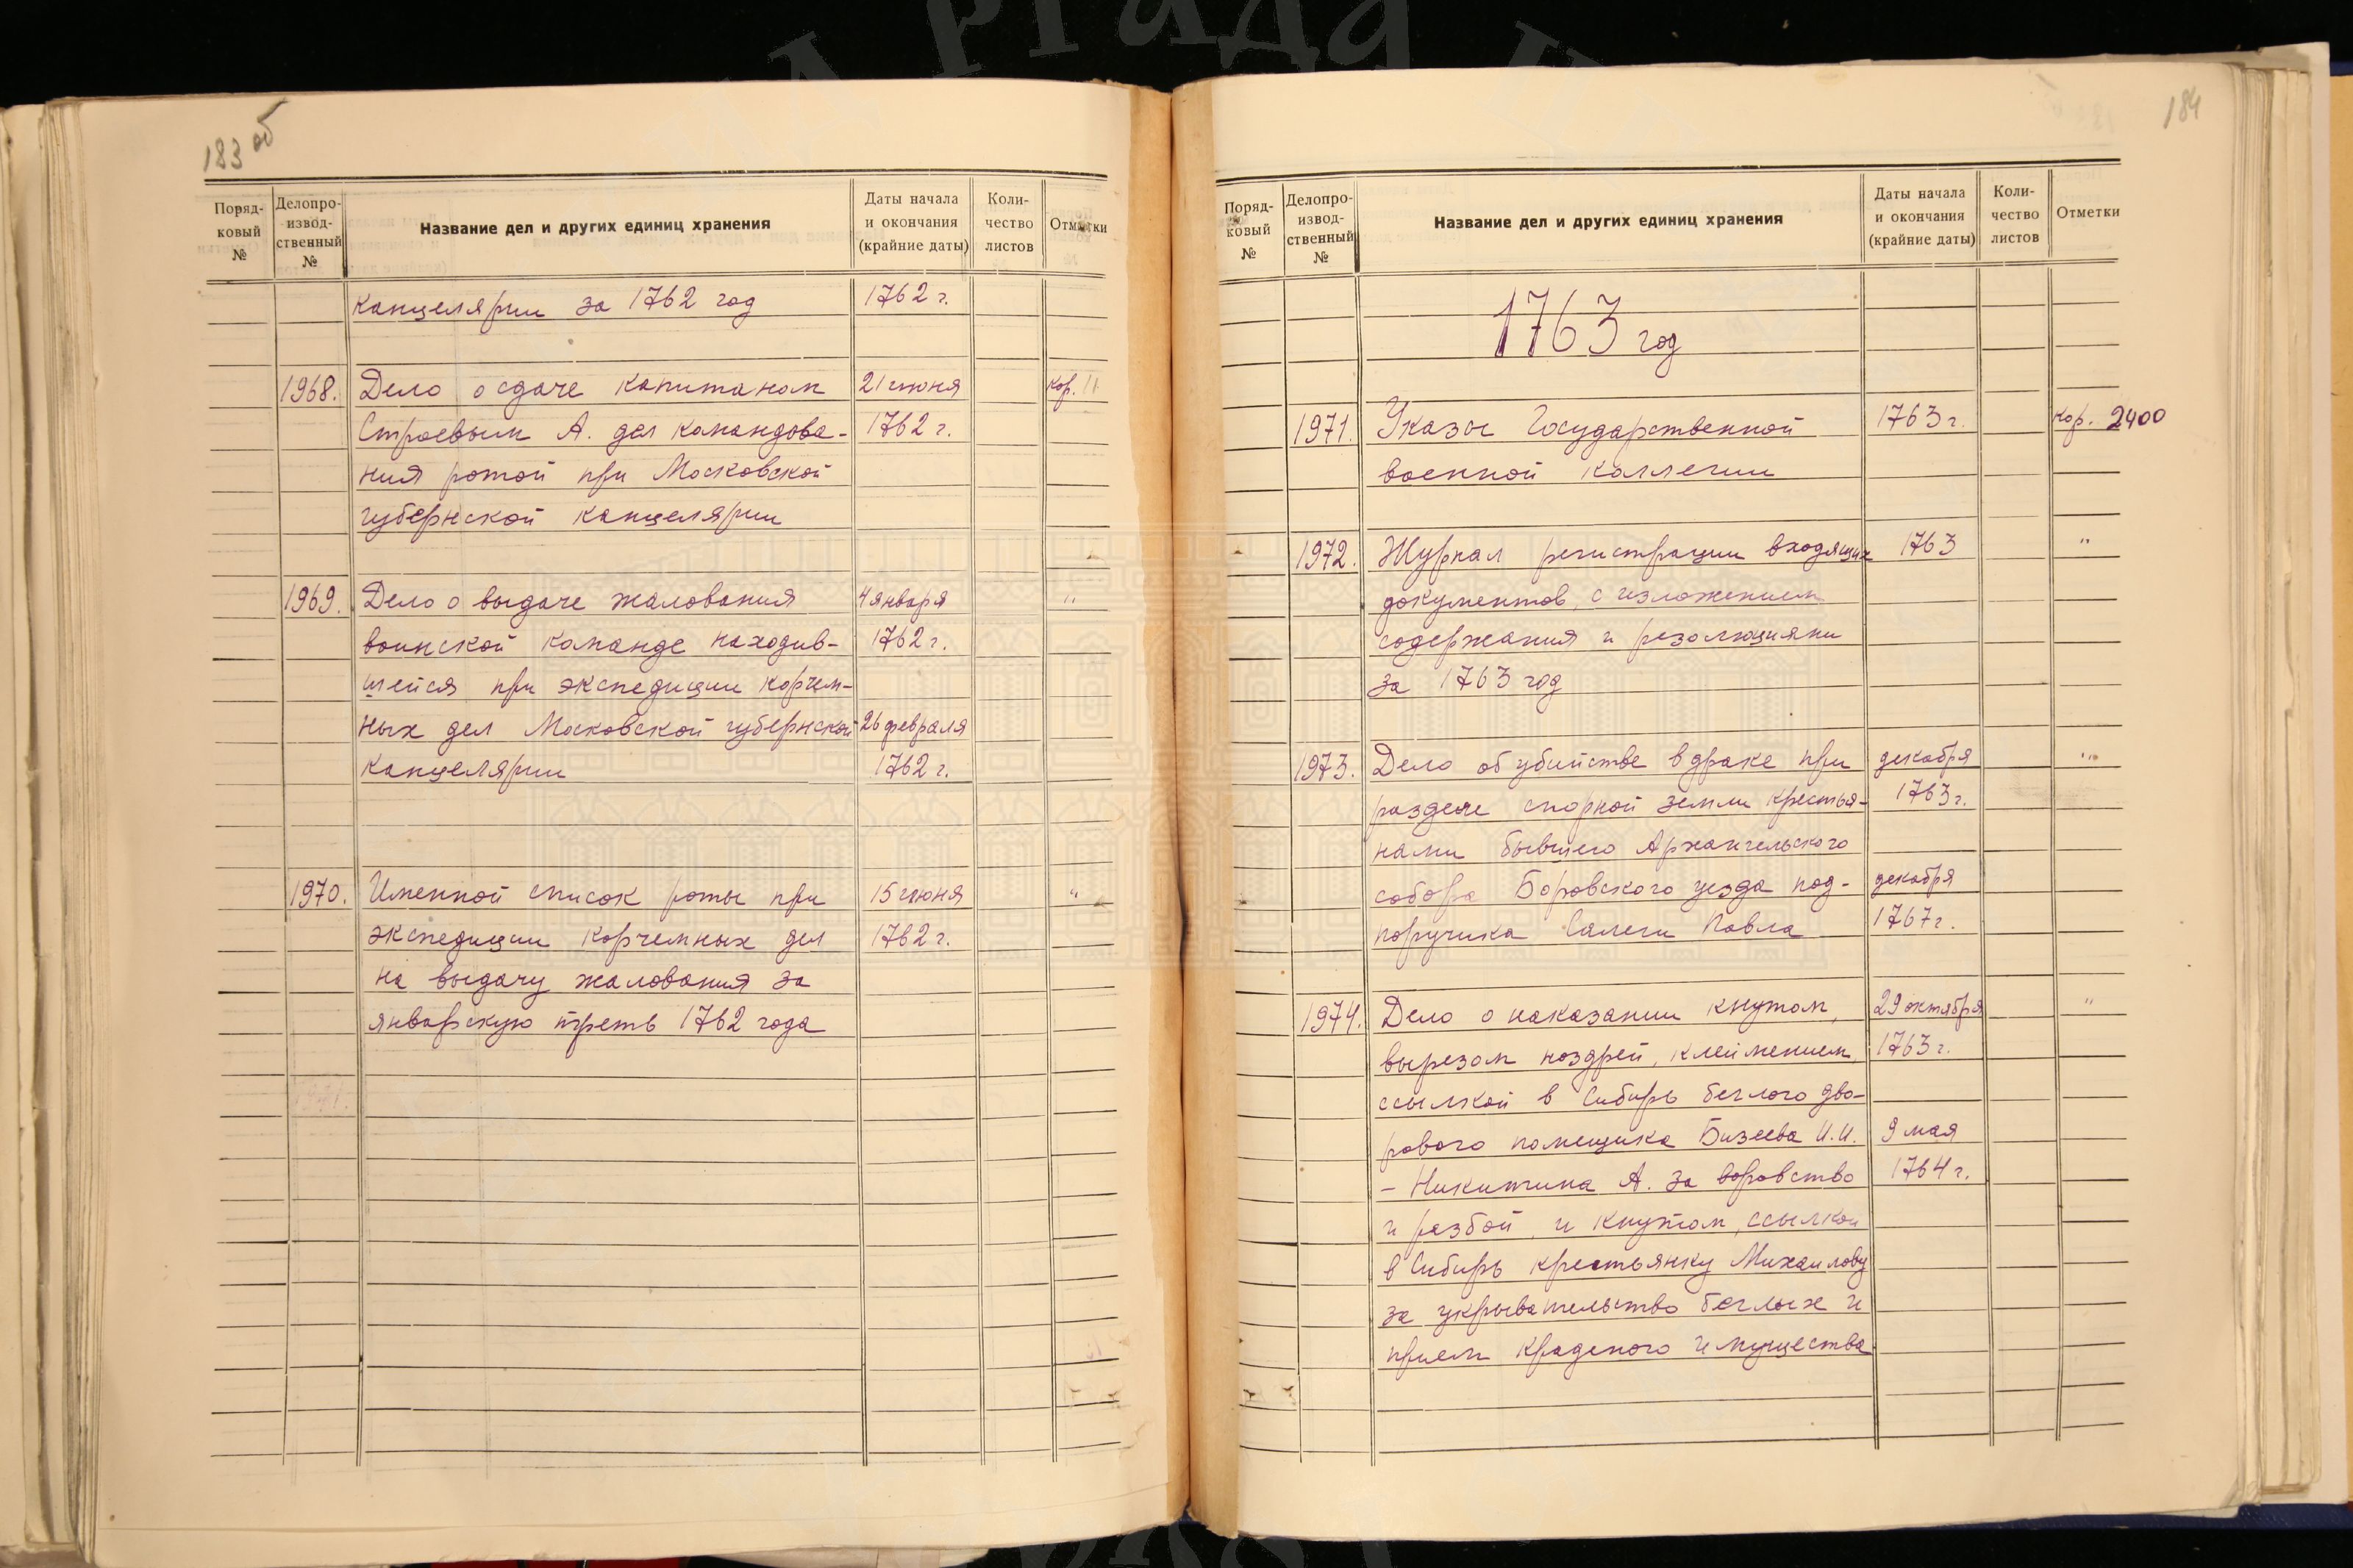 183 об
Поряд-
ковый
№
Делопро-
извод-
ственный
№
Название дел и других единиц хранения
Даты начала
и окончания
(крайние даты)
Коли-
чество
листов
Отметки
канцелярии за 1762 год 1762 г.
1968. Дело о сдаче капитаном 21 июня кор. 11
Строевым А. дел командова- 1762 г.
ния ротой при Московской
губернской канцелярии
1969. Дело о выдаче жалования 4 января "
воинской команде находив- 1762 г.
шейся при экспедиции корчем-
ных дел Московской губернской 26 февраля
канцелярии 1762 г.
1970. Именной список роты при 15 июня "
экспедиции корчемных дел 1762 г.
на выдачу жалования за
январскую треть 1762 года
1971.
184
Поряд-
ковый
№
Делопро-
извод-
ственный
№
Название дел и других единиц хранения
Даты начала
и окончания
(крайние даты)
Коли-
чество
листов
Отметки
1763 год
1971. Указы Государственной 1763 г. кор. 2400
военной коллегии
1972. Журнал регистрации входящих 1763 "
документов, с изложением
содержания и резолюциями
за 1763 год
1973. Дело об убийстве в драке при декабря "
разделе спорной земли крестья- 1763 г.
нами бывшего Архангельского
собора Боровского уезда под- декабря
поручика Салеги Павла 1767 г.
1974. Дело о наказании кнутом, 29 октября "
вырезом ноздрей, клеймением, 1763 г.
ссылкой в Сибирь беглого дво-
рового помещика Бизеева И.И. 9 мая
- Никитина А. за воровство 1764 г.
и разбой, и кнутом, ссылкой
в Сибирь крестьянку Михайлову
за укрывательство беглых и
прием краденого имущества